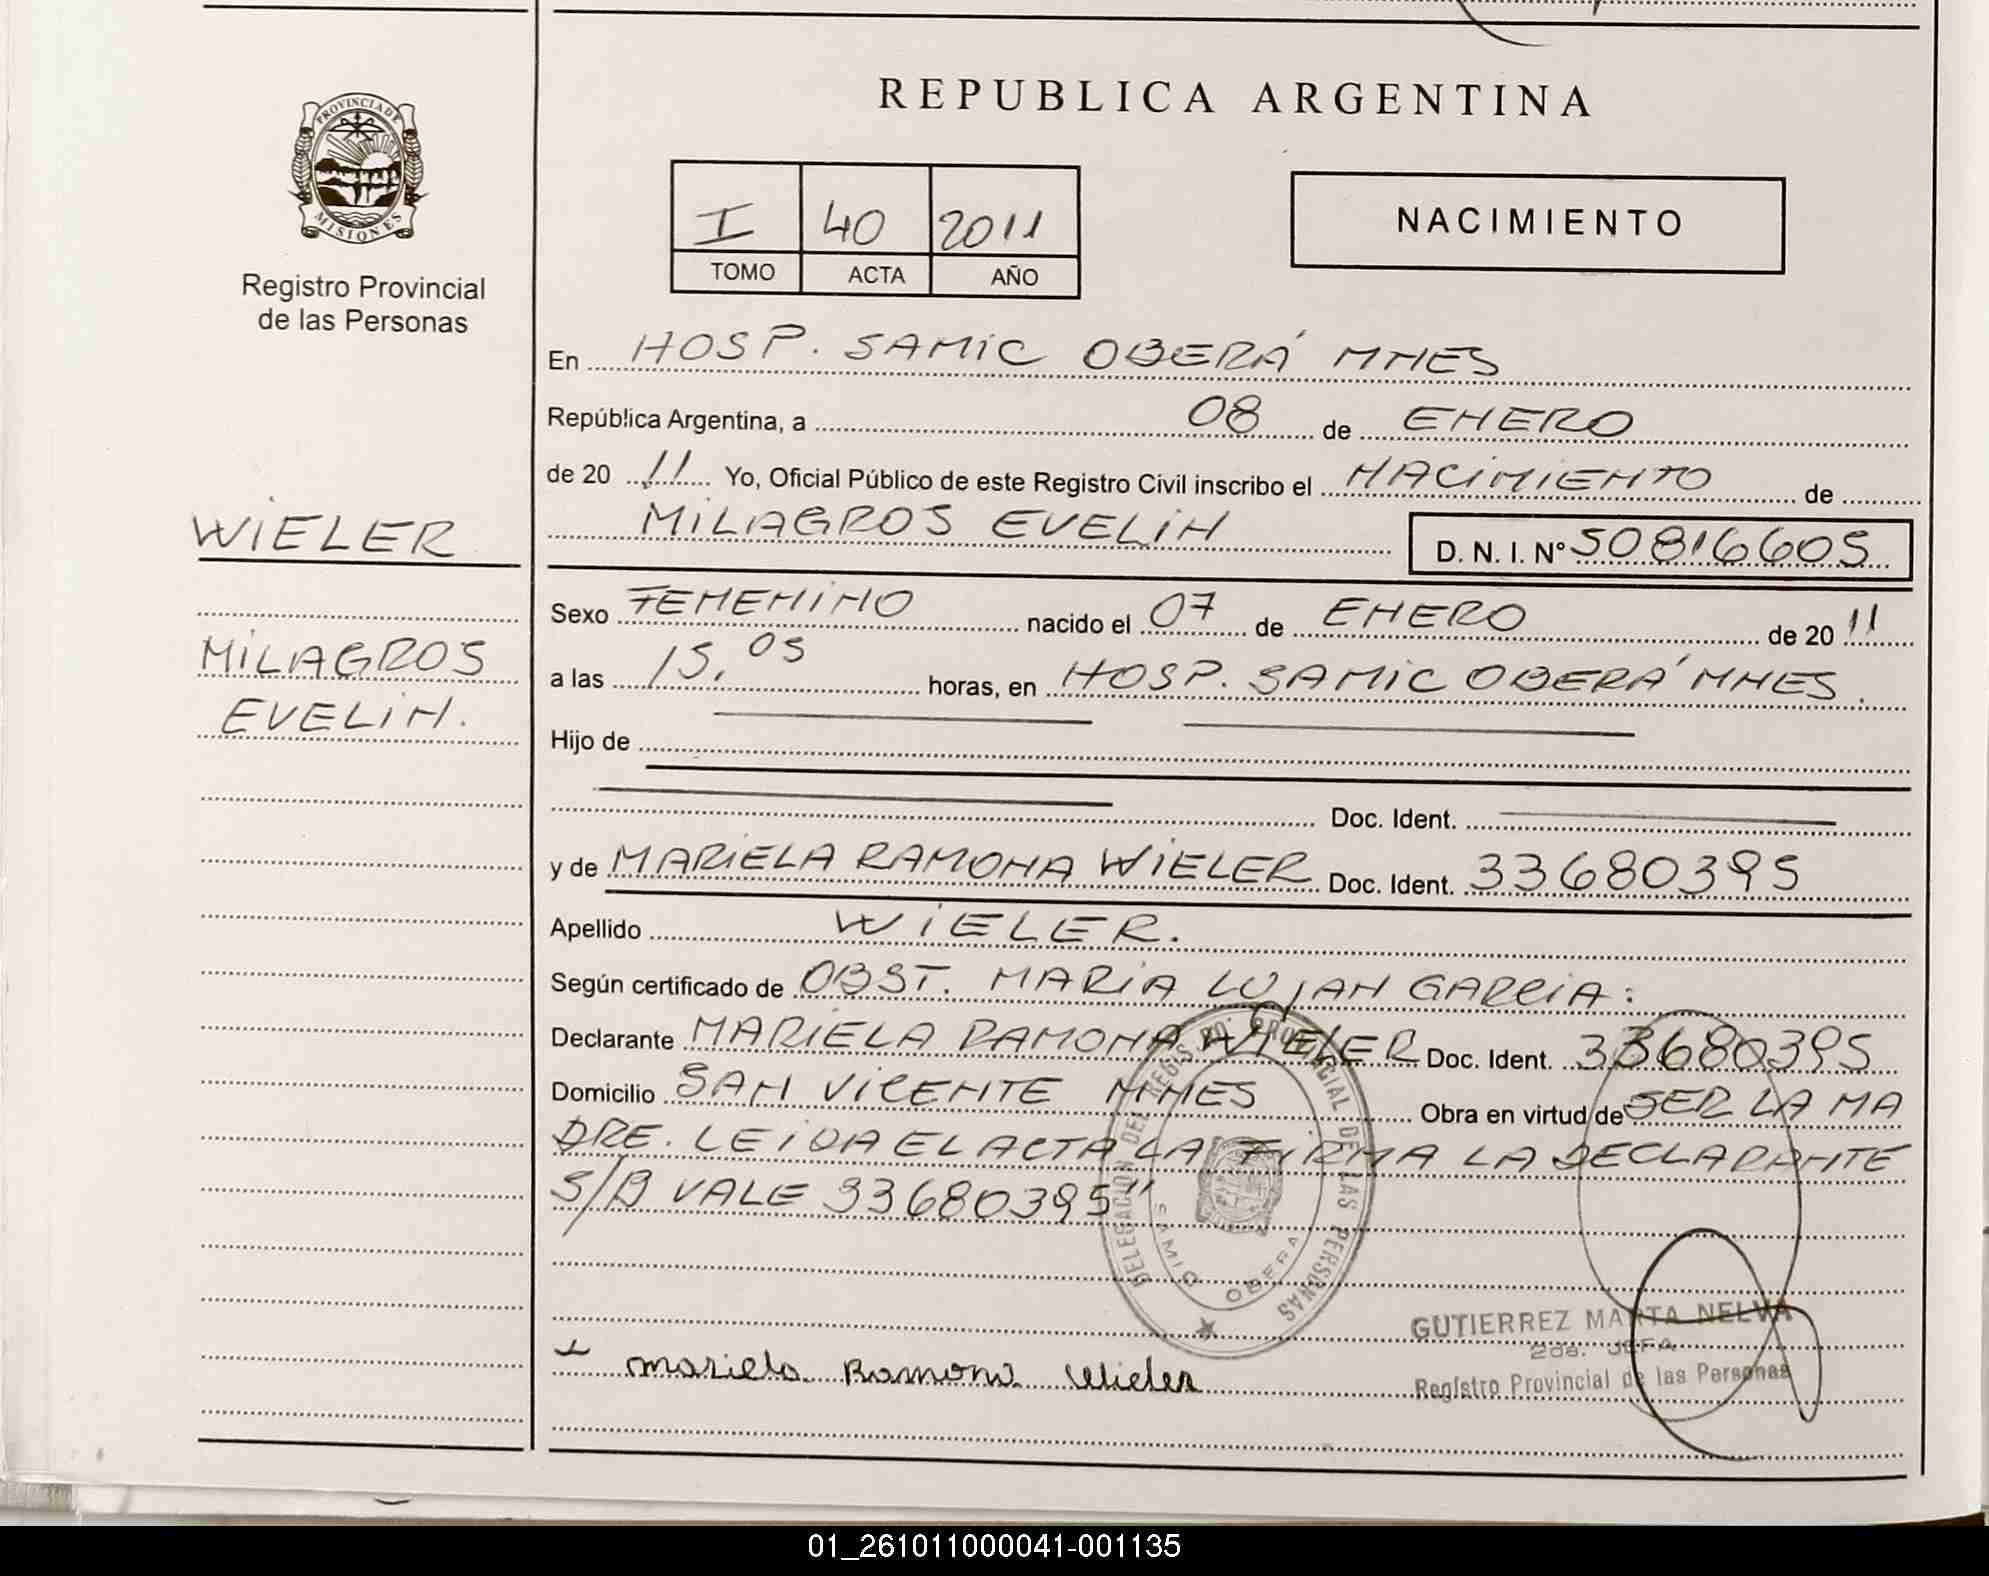 REPUBLICA ARGENTINA
PROVINCIA DE
MISIONES
Registro Provincial
de las Personas
I 40 2011
TOMO ACTA AÑO
NACIMIENTO
En HOSP. SAMIC OBERÁ MNES
República Argentina, a 08 de ENERO
de 20 11 Yo, Oficial Público de este Registro Civil inscribo el NACIMIENTO de
MILAGROS EVELIN D. N. I. Nº 50816605
WIELER
MILAGROS
EVELIN.
Sexo FEMENINO nacido el 07 de ENERO de 20 11
a las 15,05 horas, en HOSP. SAMIC OBERÁ MNES.
Hijo de
Doc. Ident.
y de MARIELA RAMONA WIELER Doc. Ident. 33680395
Apellido WIELER.
Según certificado de OBST. MARIA LUJAN GARCIA:
Declarante MARIELA RAMONA WIELER Doc. Ident. 33680395
Domicilio SAN VICENTE MNES Obra en virtud de SER LA MA
DRE. LEIDA EL ACTA LA FIRMA LA DECLARANTE
S/B VALE 33680395"
DELEGACION DEL REGISTRO PROVINCIAL DE LAS PERSONAS
SAMIC OBERA
GUTIERREZ MARTA NELVA
2da. JEFA
Registro Provincial de las Personas
Mariela Ramona Wieler
01_261011000041-001135